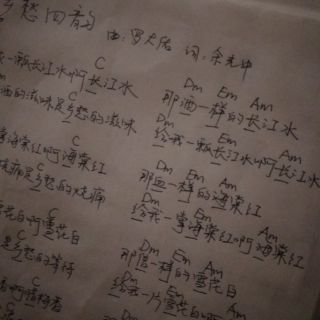 乡愁四韵
曲：罗大佑 词：余光中
C
一瓢长江水啊长江水
酒的滋味是乡愁的滋味
C
掌海棠红啊海棠红
C
烧痛是乡愁的烧痛
C
雪花白啊雪花白
C
是乡愁的等待
C
Dm Em Am
那酒一样的长江水
Dm Em Am
给我一瓢长江水啊长江水
Dm Em Am
那血一样的海棠红
Dm Em Am
给我一掌海棠红啊海棠红
Dm Em Am
那信一样的雪花白
Dm Em Am
给我一片雪花白啊
Dm Em